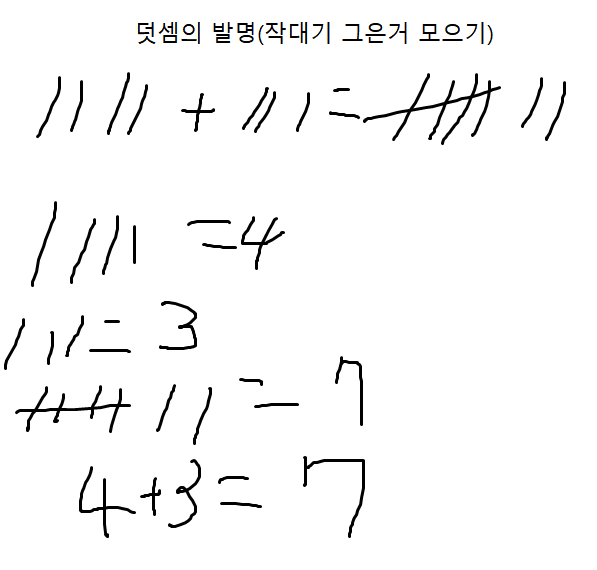 덧셈의 발명(작대기 그은거 모으기)
//// + /// = //// //
//// = 4
/// = 3
//// // = 7
4+3=7